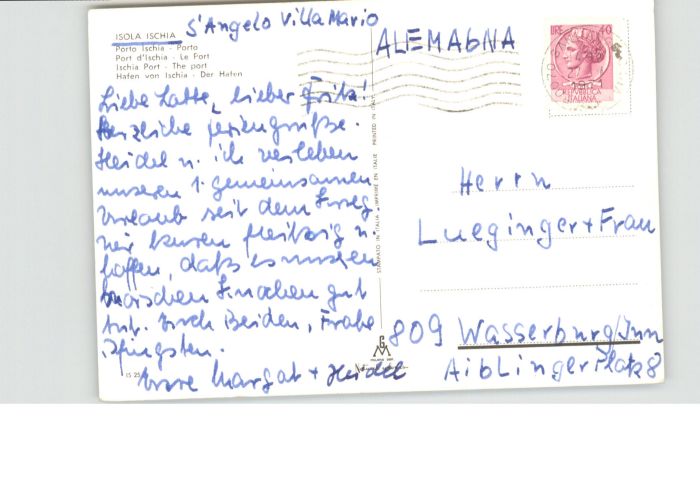 S'Angelo Villa Mario
ISOLA ISCHIA
Porto Ischia - Porto
Port d'Ischia - Le Port
Ischia Port - The port
Hafen von Ischia - Der Hafen
Liebe Lotte, lieber Fritz!
Herzliche Feriengrüße.
Heidel u. ich verleben
unseren 1. gemeinsamen
Urlaub seit dem Krieg.
Wir kuren fleißig u.
hoffen, daß es unseren
morschen Knochen gut
tut. Euch Beiden, Frohe
Pfingsten.
Eure Margot + Heidel
ALEMAGNA
LIRE 40
REPVBBLICA
ITALIANA
Herrn
Lueginger + Frau
809 Wasserburg/Inn
Aiblinger Platz 8
STAMPATO IN ITALIA IMPRIMÉ EN ITALIE PRINTED IN ITALY